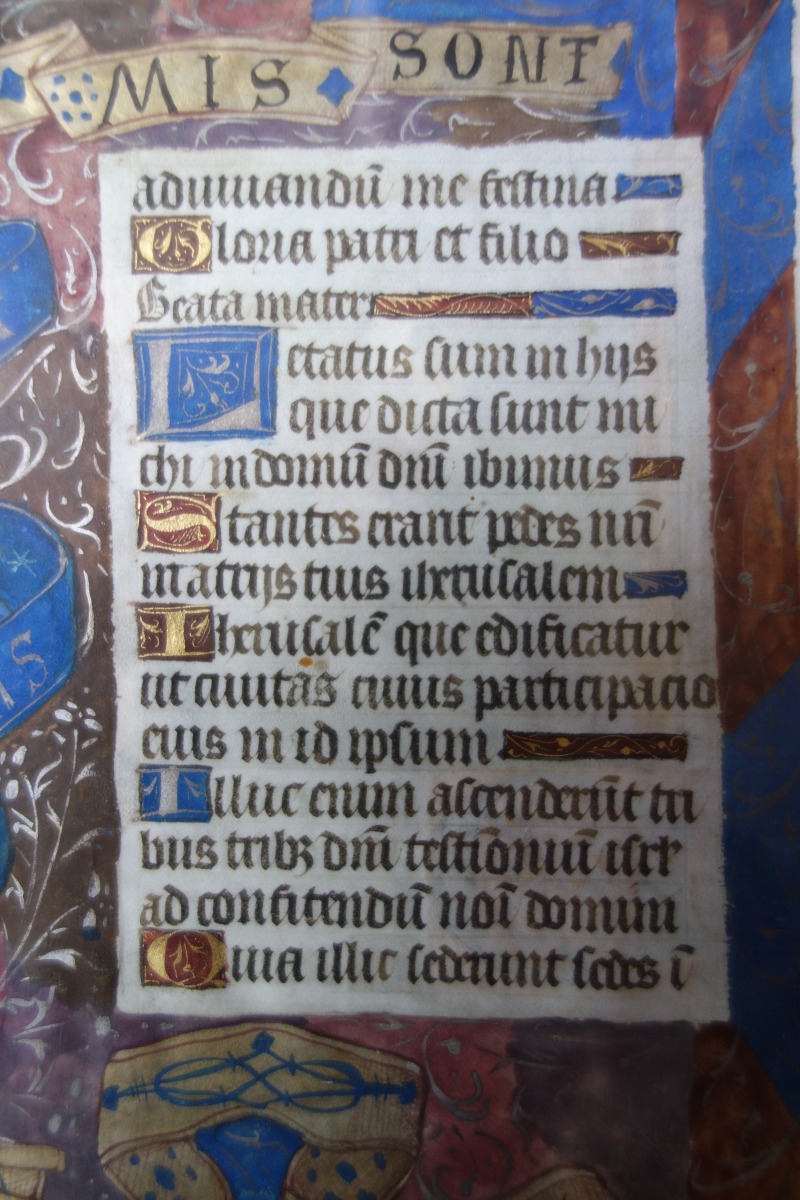 MIS SONT
adiuuandū me festina
Gloria patri et filio
Beata mater
Letatus sum in hijs
que dicta sunt mi
chi in domū dnī ibimus
Stantes erant pedes nrī
in atrijs tuis iherusalem
Iherusalē que edificatur
ut ciuitas cuius participacio
eius in id ipsum
Illuc enim ascenderūt tri
bus tribꝫ dnī testīonium isrł
ad confitendū noī domini
Quia illic sederunt sedes ī
IS